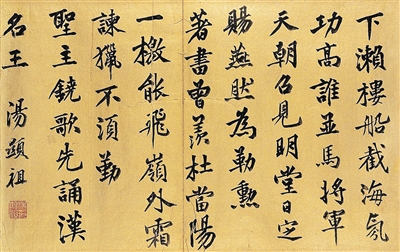 下瀨樓船截海氛
功高誰並馬將軍
天朝召見明堂日定
賜燕然為勒勳
著書曾羨杜當陽
一檄能飛嶺外霜
諫獵不須勤
聖主鐃歌先誦漢
名王 湯顯祖